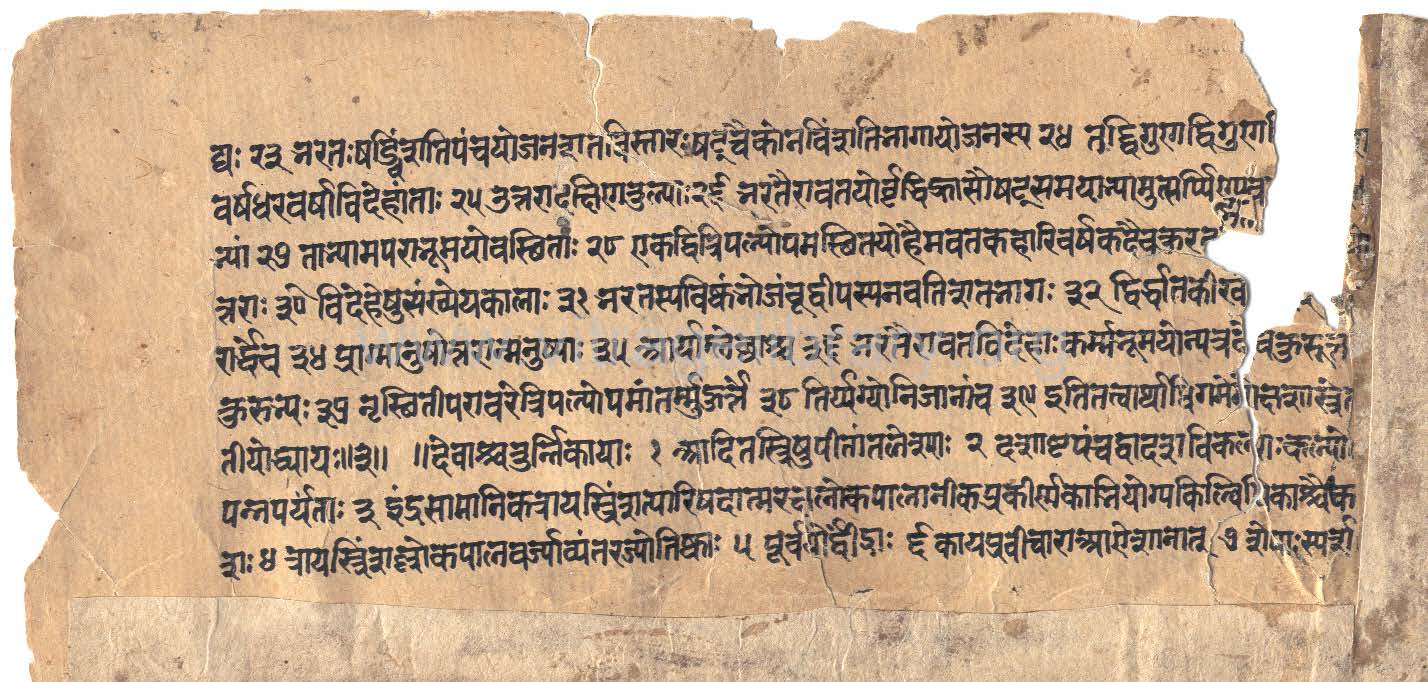 द्यः २३ भरतःषड्विंशतिपंचयोजनशतविस्तारःषट्चैकोनविंशतिभागायोजनस्य २४ तद्द्विगुणद्विगुणा
वर्षधरवर्षाविदेहांताः २५ उत्तरादक्षिणतुल्याः २६ भरतैरावतयोर्वृद्धिह्रासौषट्समयाभ्यामुत्सर्प्पिण्यव
भ्यां २७ ताभ्यामपराभूमयोवस्थिताः २८ एकद्वित्रिपल्योपमस्थितयोहैमवतकहारिवर्षकदैवकुरव
त्तराः ३० विदेहेषुसंख्येयकालाः ३१ भरतस्यविष्कंभोजंबूद्वीपस्यनवतिशतभागः ३२ द्विर्द्धातकीखं
रार्द्धेच ३४ प्राग्मानुषोत्तरान्मनुष्याः ३५ आर्याम्लेच्छाश्च ३६ भरतैरावतविदेहाःकर्म्मभूमयोन्यत्रदेवकुरूत्त
कुरुभ्यः ३७ नृस्थितीपरावरेत्रिपल्योपमांतर्म्मुहूर्त्ते ३८ तिर्य्यग्योनिजानांच ३९ इतितत्वार्थाधिगमेमोक्षशास्त्रेतृ
तीयोध्यायः॥३॥ ॥देवाश्चतुर्न्निकायाः १ आदितस्त्रिषुपीतांतलेश्याः २ दशाष्टपंचद्वादशविकल्पाःकल्पो
पन्नपर्यंताः ३ इंद्रसामानिकत्रायस्त्रिंशत्पारिषदात्मरक्षलोकपालानीकप्रकीर्णकाभियोग्यकिल्विषिकाश्चैक
शः ४ त्रायस्त्रिंशल्लोकपालवर्ज्याव्यंतरज्योतिष्काः ५ पूर्वयोर्द्वींद्राः ६ कायप्रवीचाराआऐशानात् ७ शेषाःस्पर्श